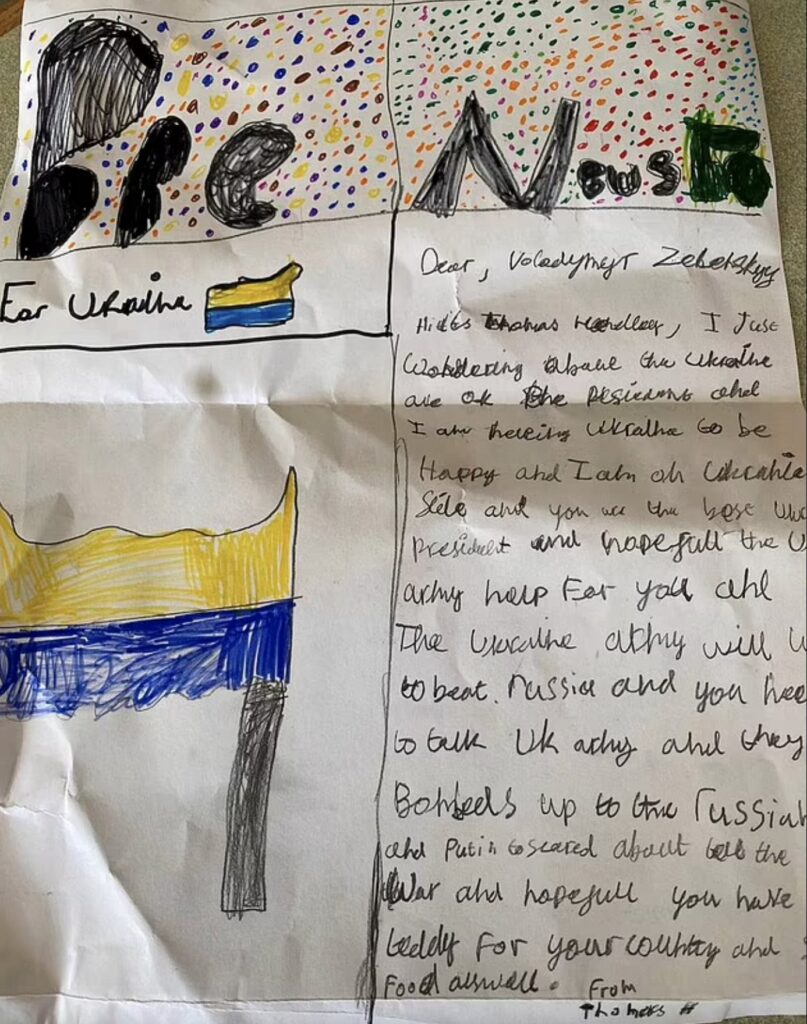 Pre News
For Ukraihe
Dear, Voladymyr Zelenskyy
I Just
Wondering about the Ukraihe
are ok the presidend and
I am Ukraihe to be
Happy and I am oh Ukrahie
Side and you are the best
president and hopefull the U
army help For you ahd
The Ukraihe army will
to beat. russia and you
to talk Uk army and they
up to the russiah
and Putin to scared about the
War and hopefull you have
teddy For your country and
Food aswell. From
Thomas H